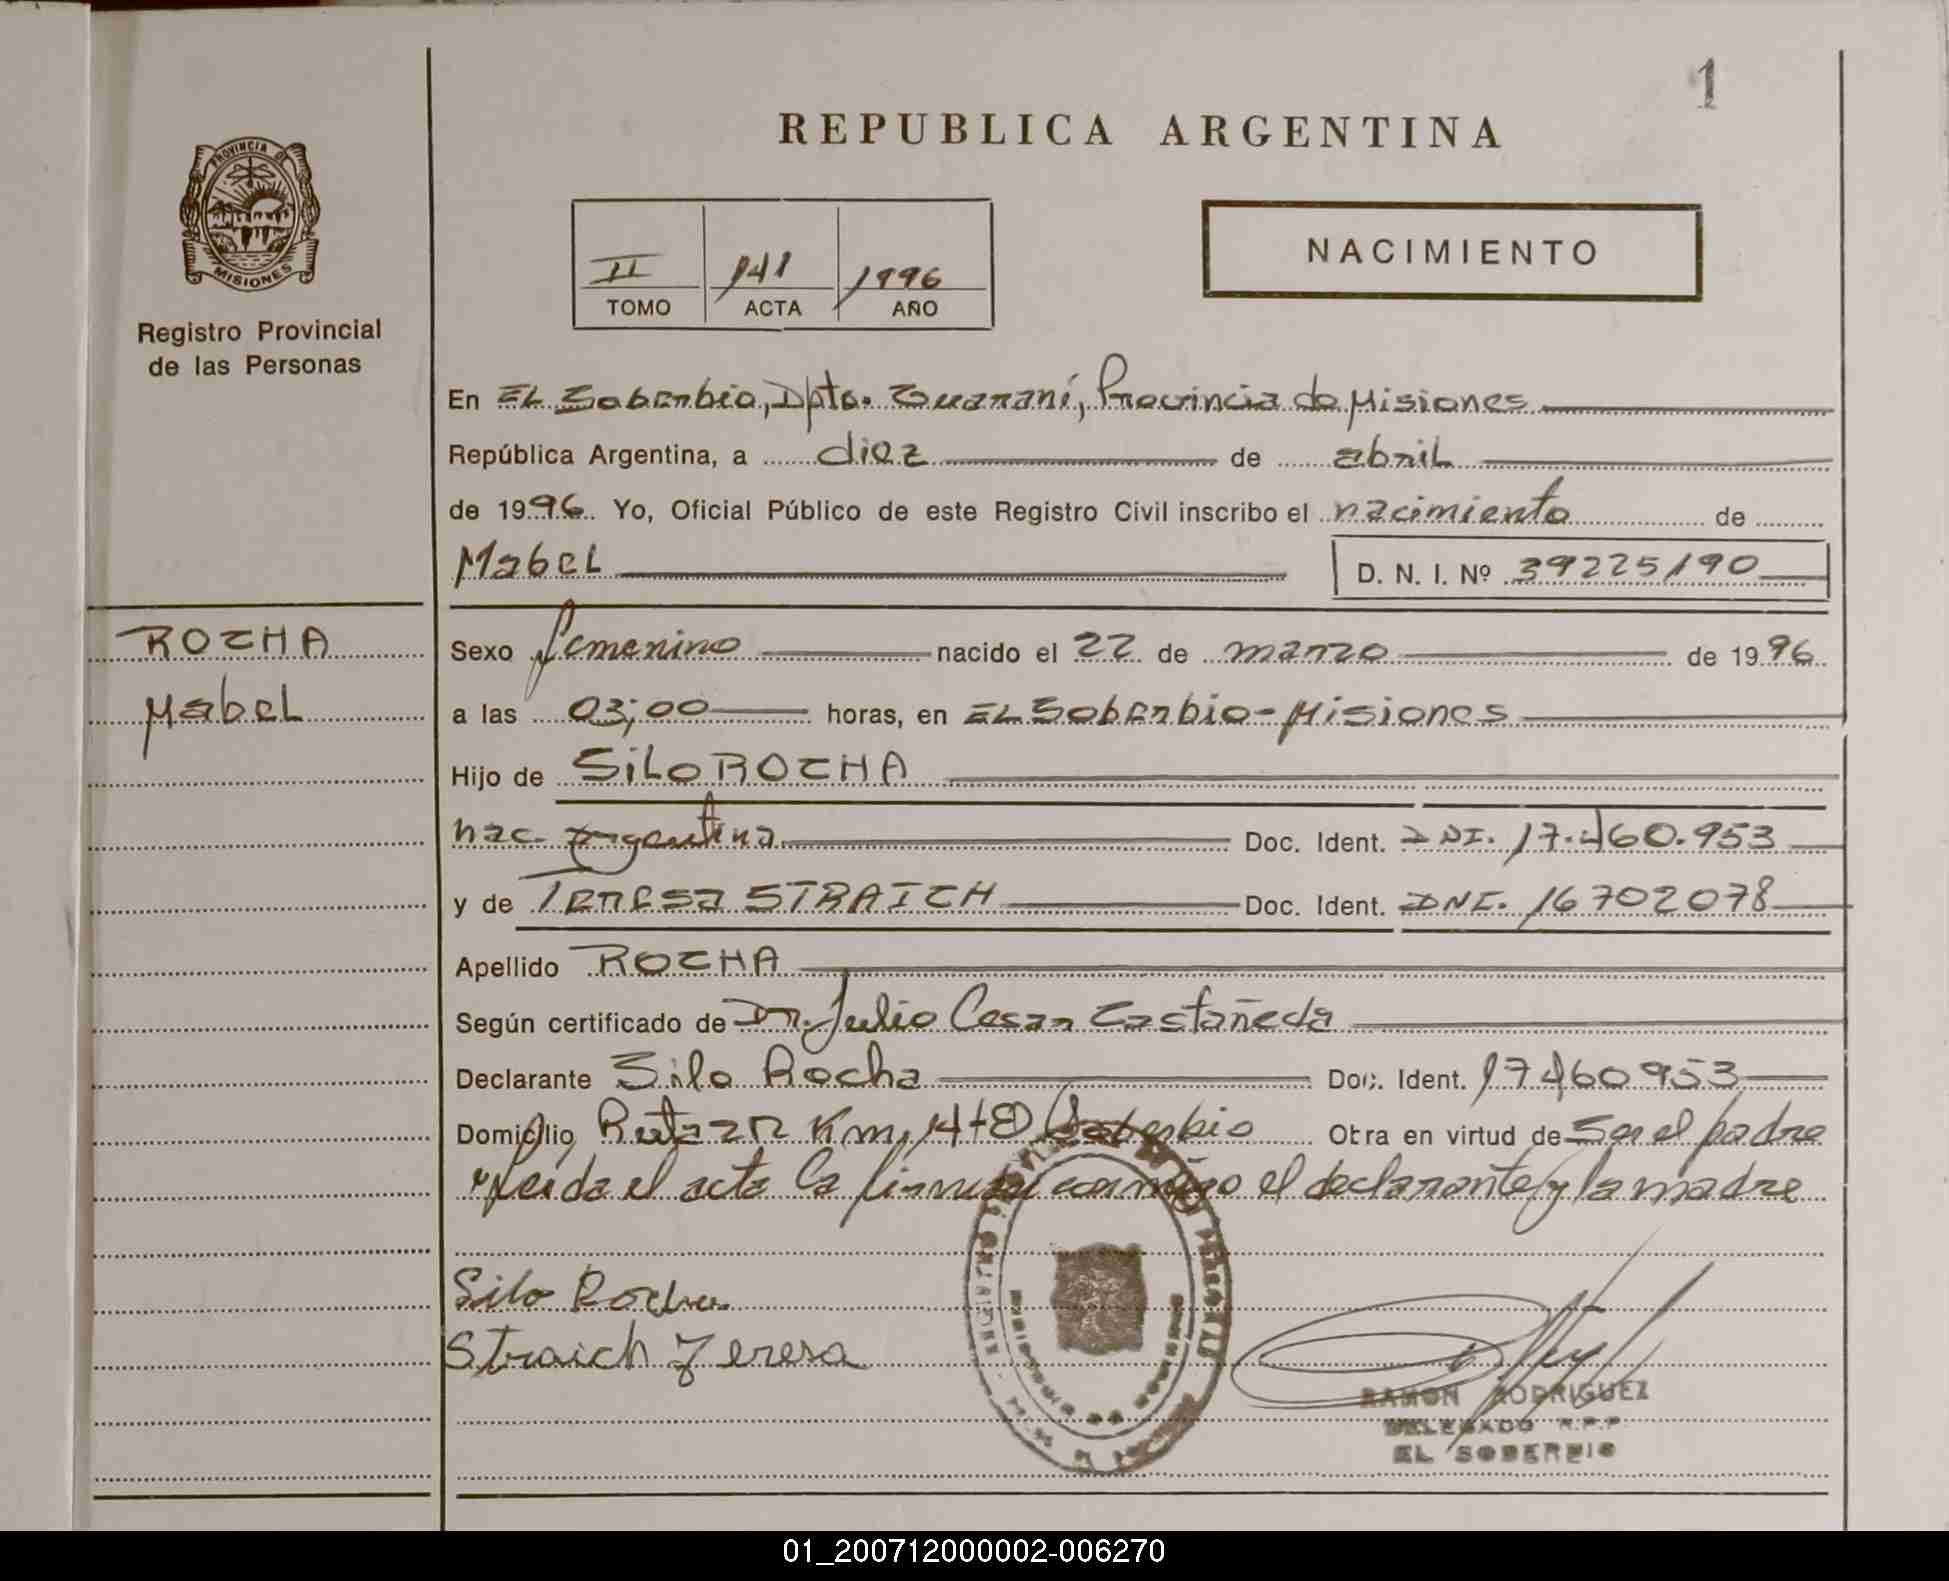 1
REPUBLICA ARGENTINA
PROVINCIA DE
MISIONES
Registro Provincial
de las Personas
II 141 1996
TOMO ACTA AÑO
NACIMIENTO
En EL Soberbio, Dpto. Guaraní, Provincia de Misiones
República Argentina, a diez de abril
de 1996. Yo, Oficial Público de este Registro Civil inscribo el nacimiento de
Mabel D. N. I. Nº 39225190
ROCHA
Mabel
Sexo femenino nacido el 22 de marzo de 1996
a las 03;00 horas, en EL Soberbio - Misiones
Hijo de Silo ROCHA
nac. argentina Doc. Ident. DNI. 17.460.953
y de Teresa STRAICH Doc. Ident. DNI. 16702078
Apellido ROCHA
Según certificado de Dr. Julio Cesar Castañeda
Declarante Silo Rocha Doc. Ident. 17460953
Domicilio Ruta 2 Km, 14 Soberbio Obra en virtud de Ser el padre
leida el acta la firman conmigo el declarante y la madre
Silo Rocha
Straich Teresa
RAMON RODRIGUEZ
DELEGADO R.P.P.
EL SOBERBIO
01_200712000002-006270